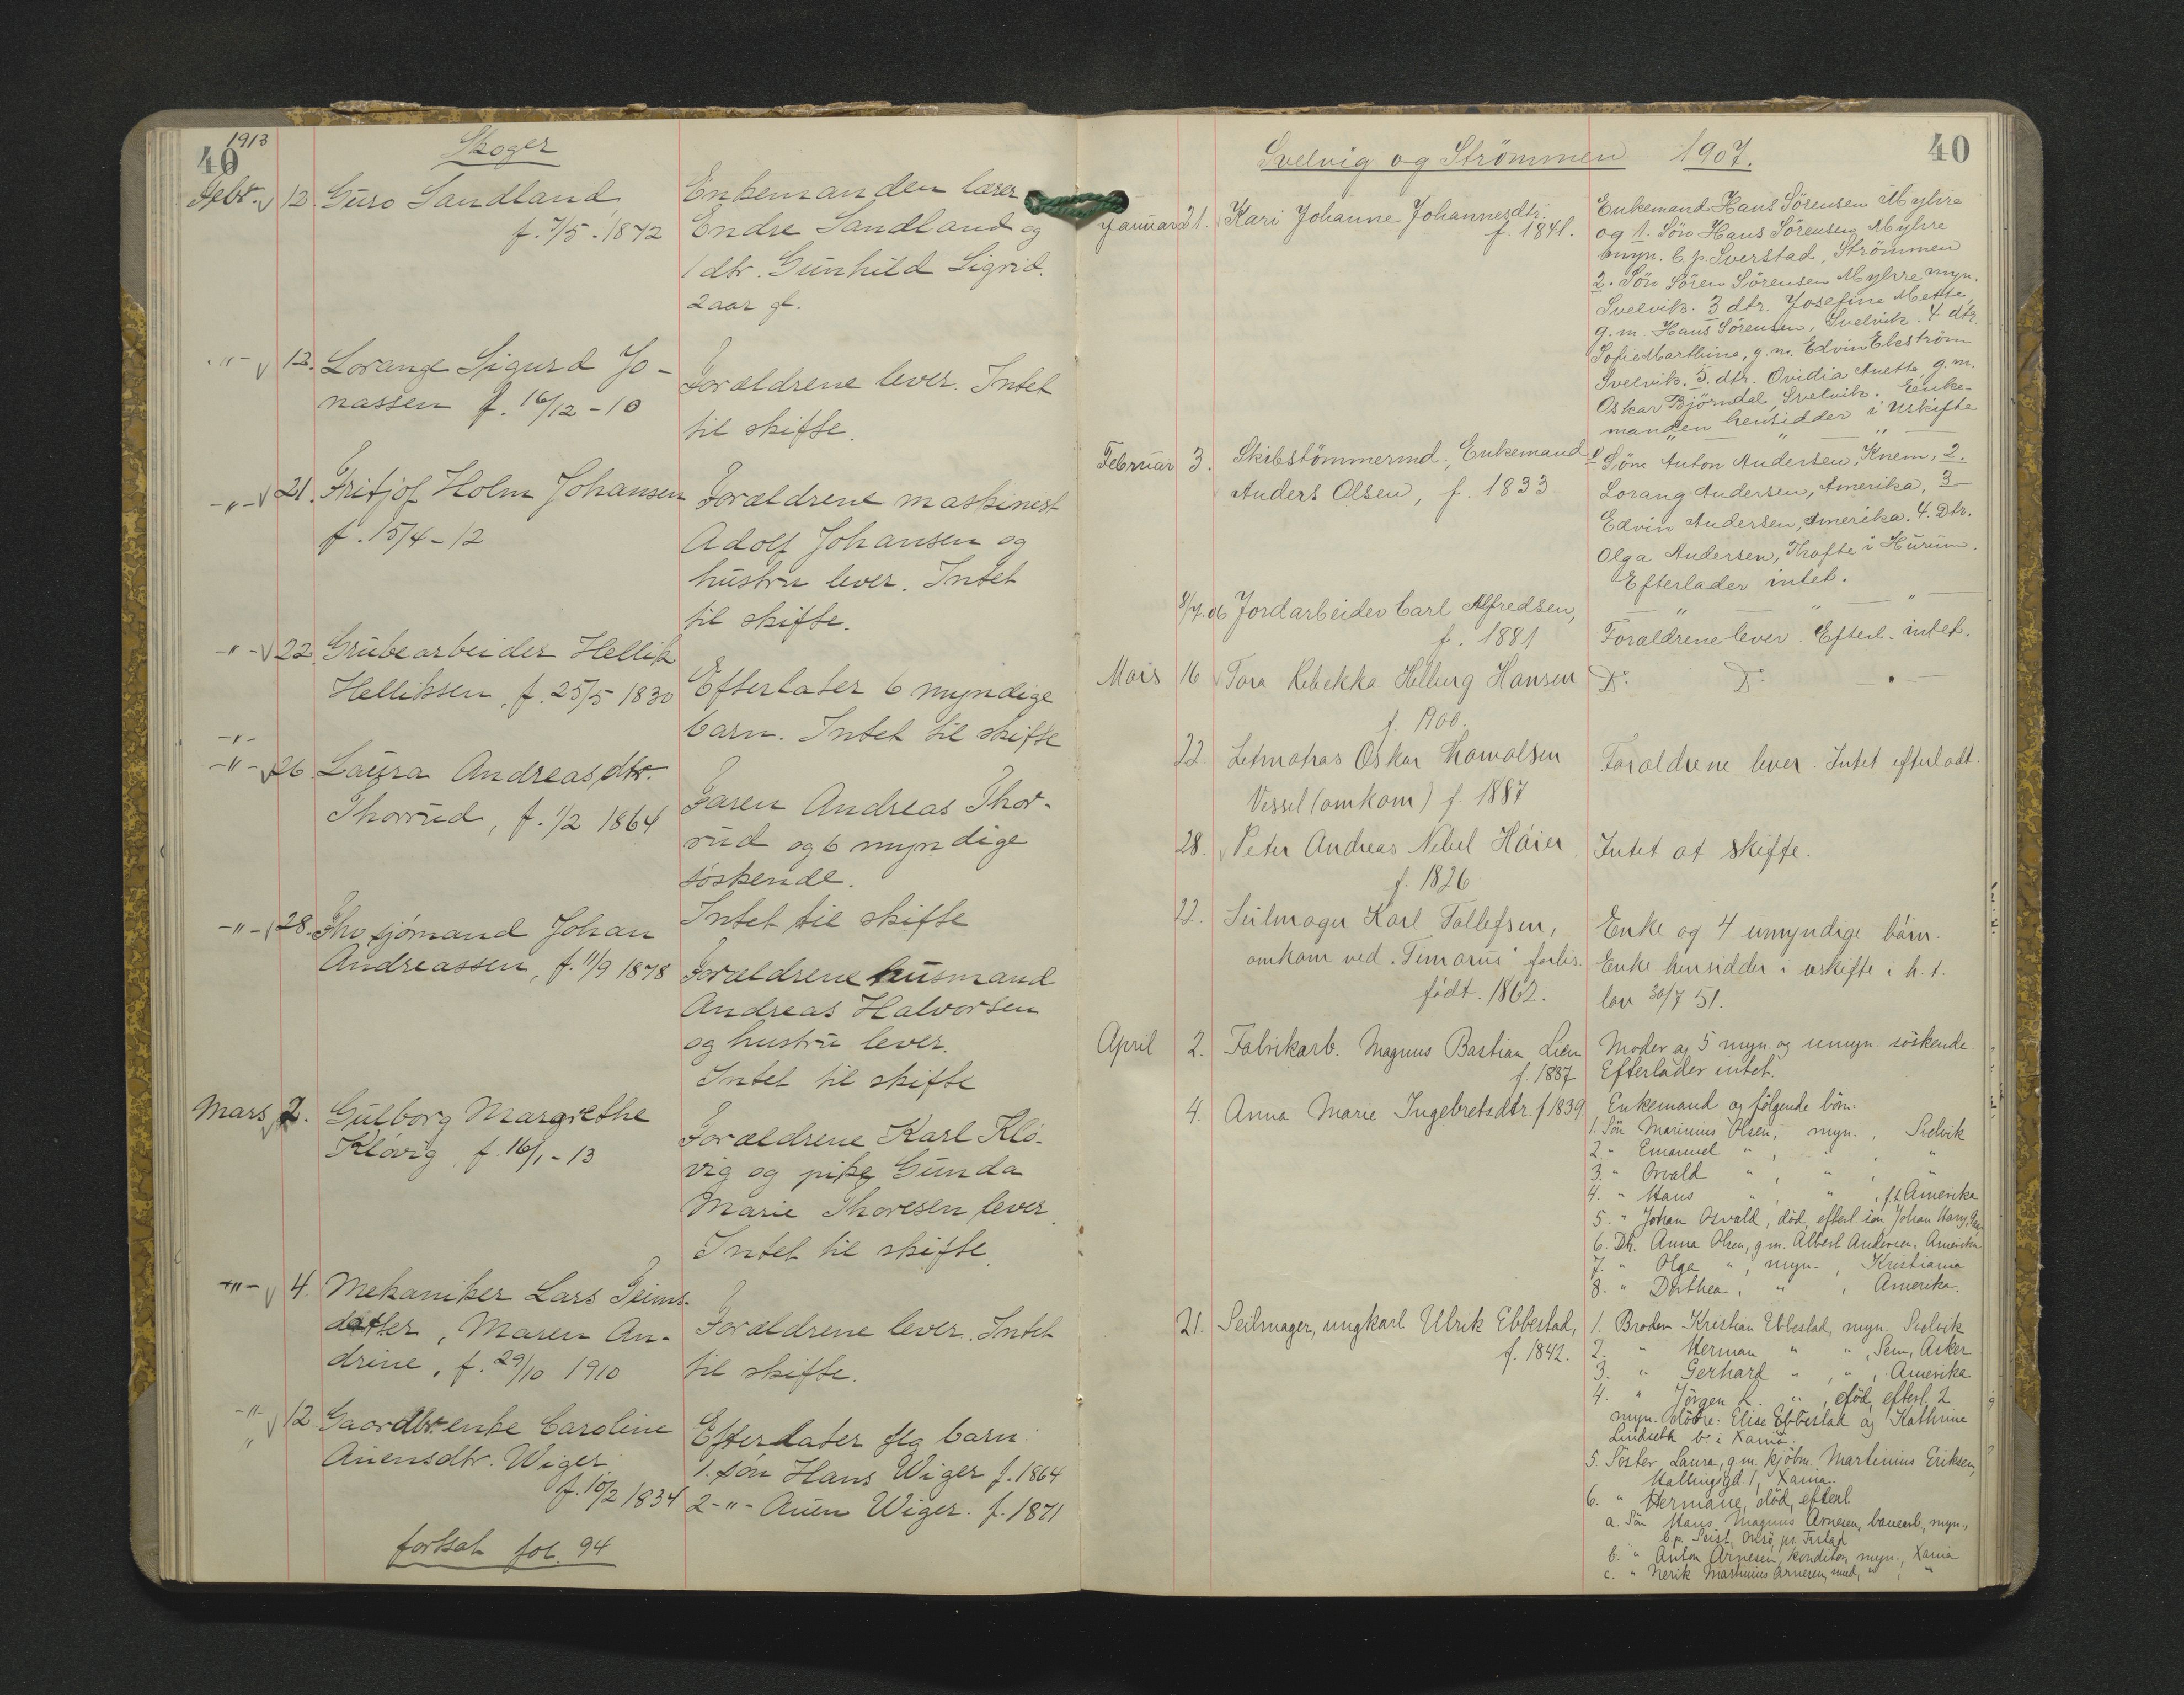 1913
40
Skoger
Febr. 12. Guro Sandland,
f. 7/5 - 1872
Enkemanden lærer
Endre Sandland og
1 dtr. Gunhild Sigrid.
2 aar gl.
-"- 12. Lorang Sigurd Jo-
nassen f. 16/12 - 10
Forældrene lever. Intet
til skifte.
-"- 21. Fritjof Holm Johansen
f. 15/4 - 12
Forældrene maskinist
Adolf Johansen og
hustru lever. Intet
til skifte.
-"- 22. Grubearbeider Hellik
Helliksen, f. 25/5 1830
Efterlater 6 myndige
barn. Intet til skifte
-"-
-"- 26. Laura Andreasdtr.
Thorrud, f. 1/2 1864
Faren Andreas Thor-
rud og 6 myndige
søskende.
Intet til skifte
-"- 28. Fhv sjømand Johan
Andreassen, f. 11/9 1878
Forældrene husmand
Andreas Halvorsen
og hustru lever.
Intet til skifte
Mars 2. Gulborg Margrethe
Kløvig, f. 16/1 - 13
Forældrene Karl Klø-
vig og pike Gunda
Marie Thoresen lever.
Intet til skifte.
-"- 4. Mekaniker Lars
datter, Maren An-
drine, f. 29/10 1910
Forældrene lever. Intet
til skifte.
-"- 12. Gaardbr.enke Caroline
Auensdtr. Wiger
f. 10/2 1834
Efterlater flg barn:
1. søn Hans Wiger f. 1864
2 -"- Auen Wiger. f. 1871
fortsat fol. 94
Svelvig og Strömmen 1907.
40
Januar 21. Kari Johanne Johannesdtr.
f. 1841.
Enkemand Hans Sörensen Myhre
og 1. Sön Hans Sörensen Myhre
myn. b. p. Sverstad, Strömmen
2. Sön Sören Sörensen Myhre myn.
Svelvik. 3 dtr. Josefine Mette,
g. m. Hans Sörensen, Svelvik. 4 dtr.
Sofie Marthine, g. m. Edvin Ekström
Svelvik. 5. dtr. Ovidia Anette, g. m.
Oskar Björndal, Svelvik. Enke-
manden hensidder i uskifte
Februar 3. Skibstömmermd., Enkemand
Anders Olsen, f. 1833
1 Sön Anton Andersen, Knem, 2.
Lorang Andersen, Amerika, 3
Edvin Andersen, Amerika. 4. Dtr.
Olga Andersen, Thofte i Hurum.
Efterlader intet.
8/7.06 Jordarbeider Carl Alfredsen,
f. 1881
Forældrene lever. Efterl. intet.
Mars 16 Tora Rebekka Helberg Hansen
f. 1900.
Do. Do.
22. Letmatros Oskar Thomalsen
Vessel (omkom) f. 1887
Forældrene lever. Intet efterladt.
28. Peter Andreas Nebel Höier
f. 1826
Intet at skifte.
22. Seilmager Karl Tollefsen,
omkom ved "Timarus" forlis.
født. 1862.
Enke og 4 umyndige börn.
Enke hensidder i uskifte i h. t.
lov 30/7 51.
April 2. Fabrikarb. Magnus Bastian Lien
f. 1887
Moder og 5 myn. og umyn. söskende.
Efterlader intet.
4. Anna Marie Ingebretsdtr. f. 1839.
Enkemand og følgende börn:
1. Sön Marinius Olsen, myn., Svelvik
2. " Emanuel " , " , "
3. " Osvald " , " , "
4. " Hans " , " , f. t. Amerika
5. " Johan Osvald, død, efterl. sön Johan Harry,
6. Dtr. Anna Olsen, g. m. Albert Andersen, Amerika
7. " Olga " , myn., Kristiania
8. " Dorthea, " , Amerika.
21. Seilmager, ungkarl Ulrik Ebbestad,
f. 1842.
1. Broder Kristian Ebbestad, myn. Svelvik
2. " Herman " " , Sem, Asker
3. " Gerhard " , " , Amerika
4. " Jörgen L. " , död, efterl. 2
myn. døtre: Elise Ebbestad og Kathrine
Lindseth b. i Xania.
5. Söster Laura, g. m. kjöbm. Martinius Eriksen,
Hallingsgd. 1, Xania.
6. " Hermane, död, efterl.
a. Sön Hans Magnus Arnesen, banearb., myn.,
b. p. Seist, Onsö, pr. F.stad
b. " Anton Arnesen, konditor, myn., Xania
c. " Nerik Martinius Arnesen, smed, " , "